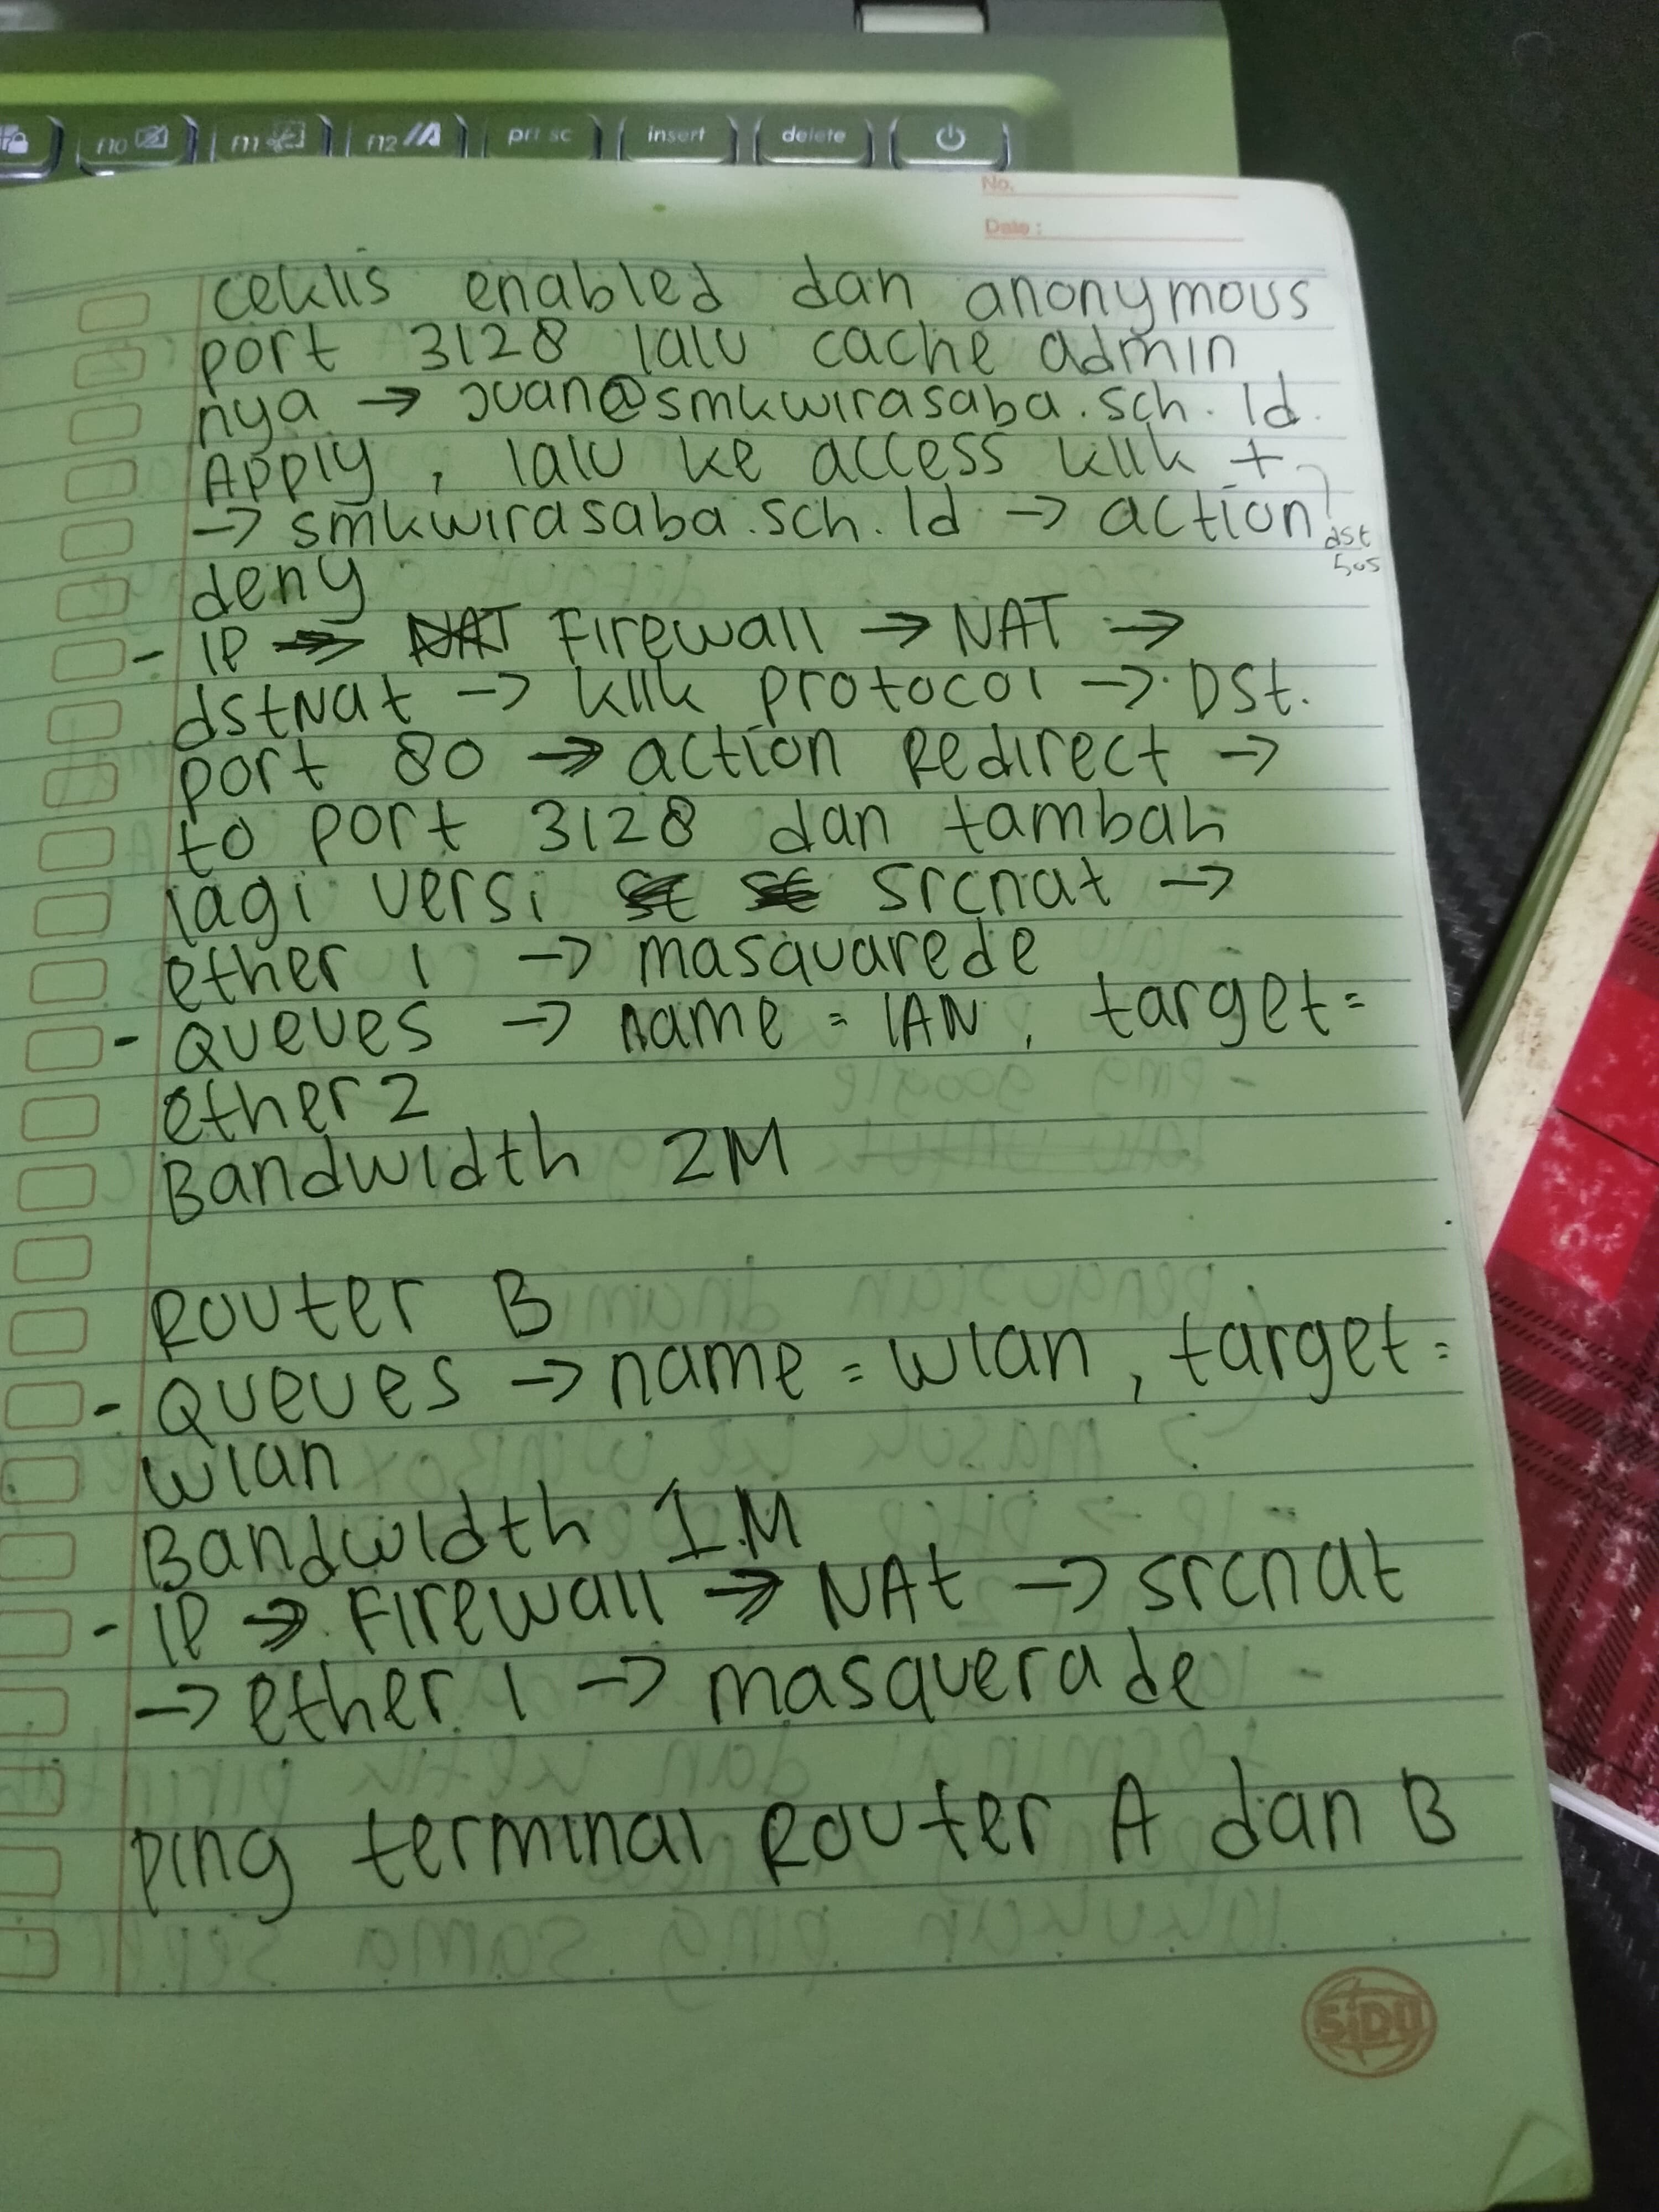 F10
F11
F12
prt sc
insert
delete
No.
Date :
ceklis enabled dan anonymous
port 3128 lalu cache admin
nya → juan@smkwirasaba.sch.id.
Apply, lalu ke access klik +
→ smkwirasaba.sch.id → action
dst
deny
- IP → NAT Firewall → NAT →
dstNat → klik protocol → Dst.
port 80 → action Redirect →
to port 3128 dan tambah
lagi versi srcnat →
ether 1 → masquarede
- Queues → name = LAN, target=
ether 2
Bandwidth 2M
Router B
- Queues → name = wlan, target=
wlan
Bandwidth 1M
- IP → Firewall → NAt → srcnat
→ ether 1 → masquerade
ping terminal Router A dan B
SiDU